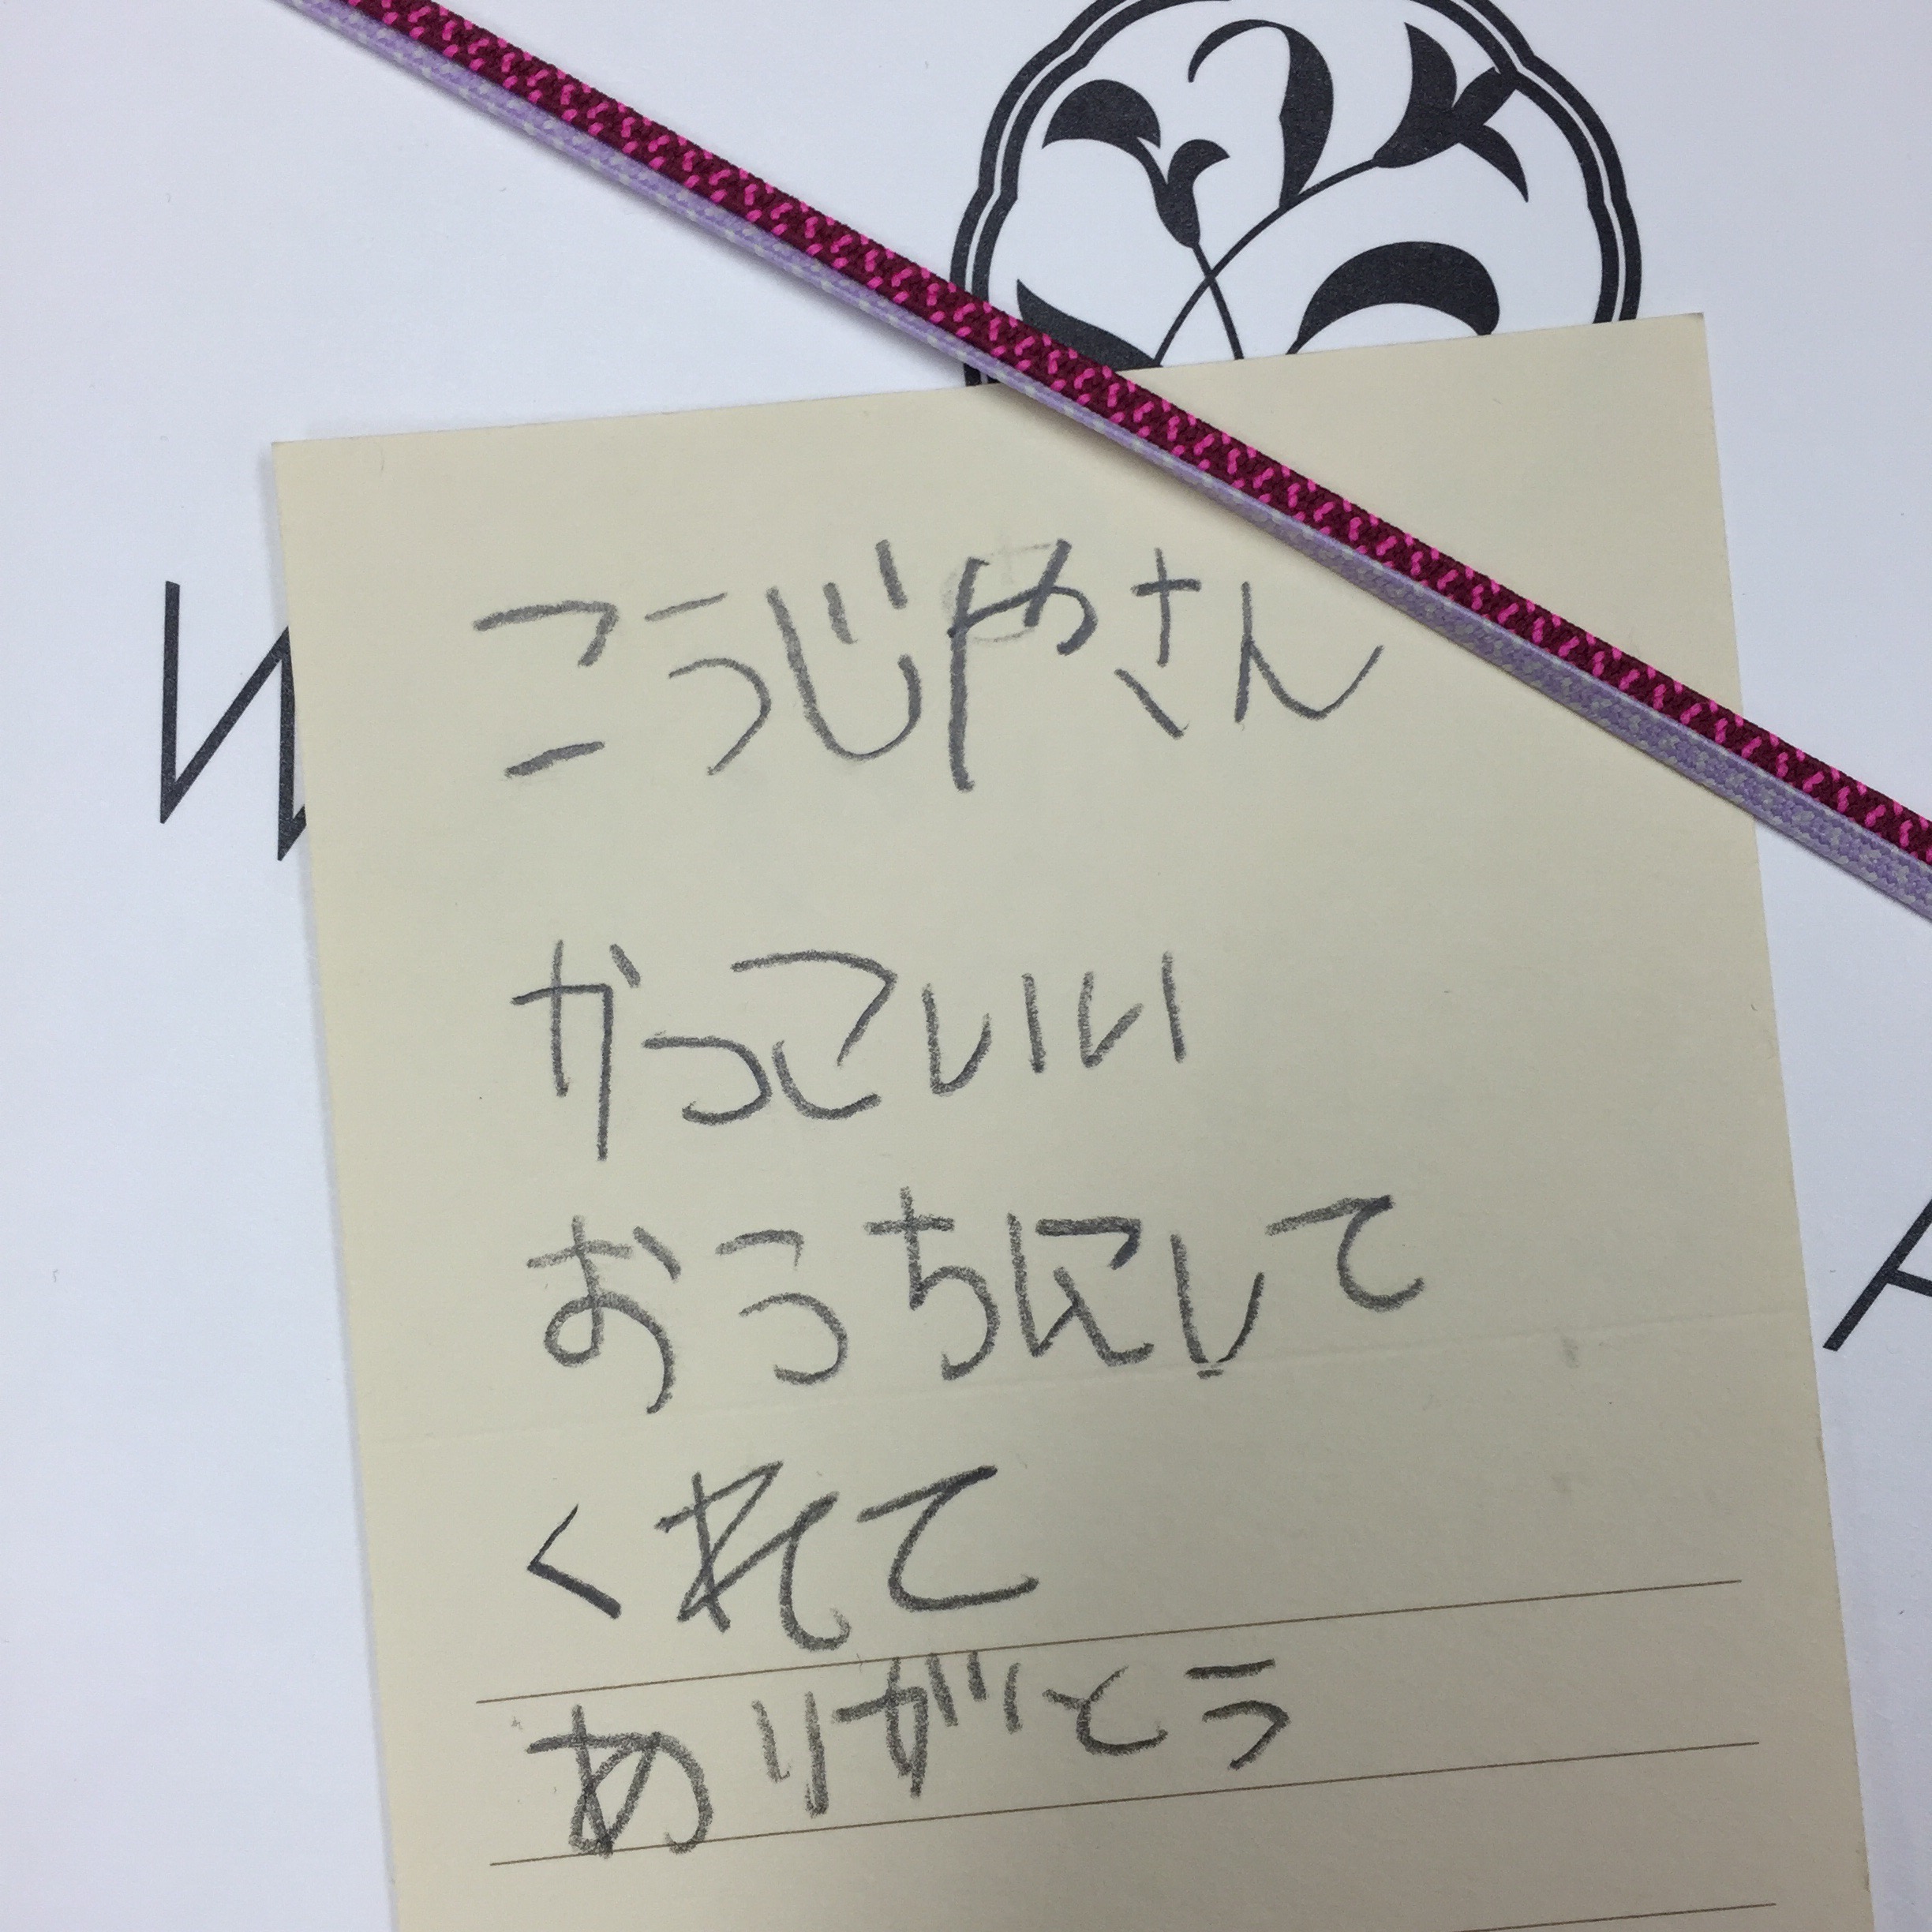 こうじやさん
かっこいい
おうちにして
くれて
ありがとう